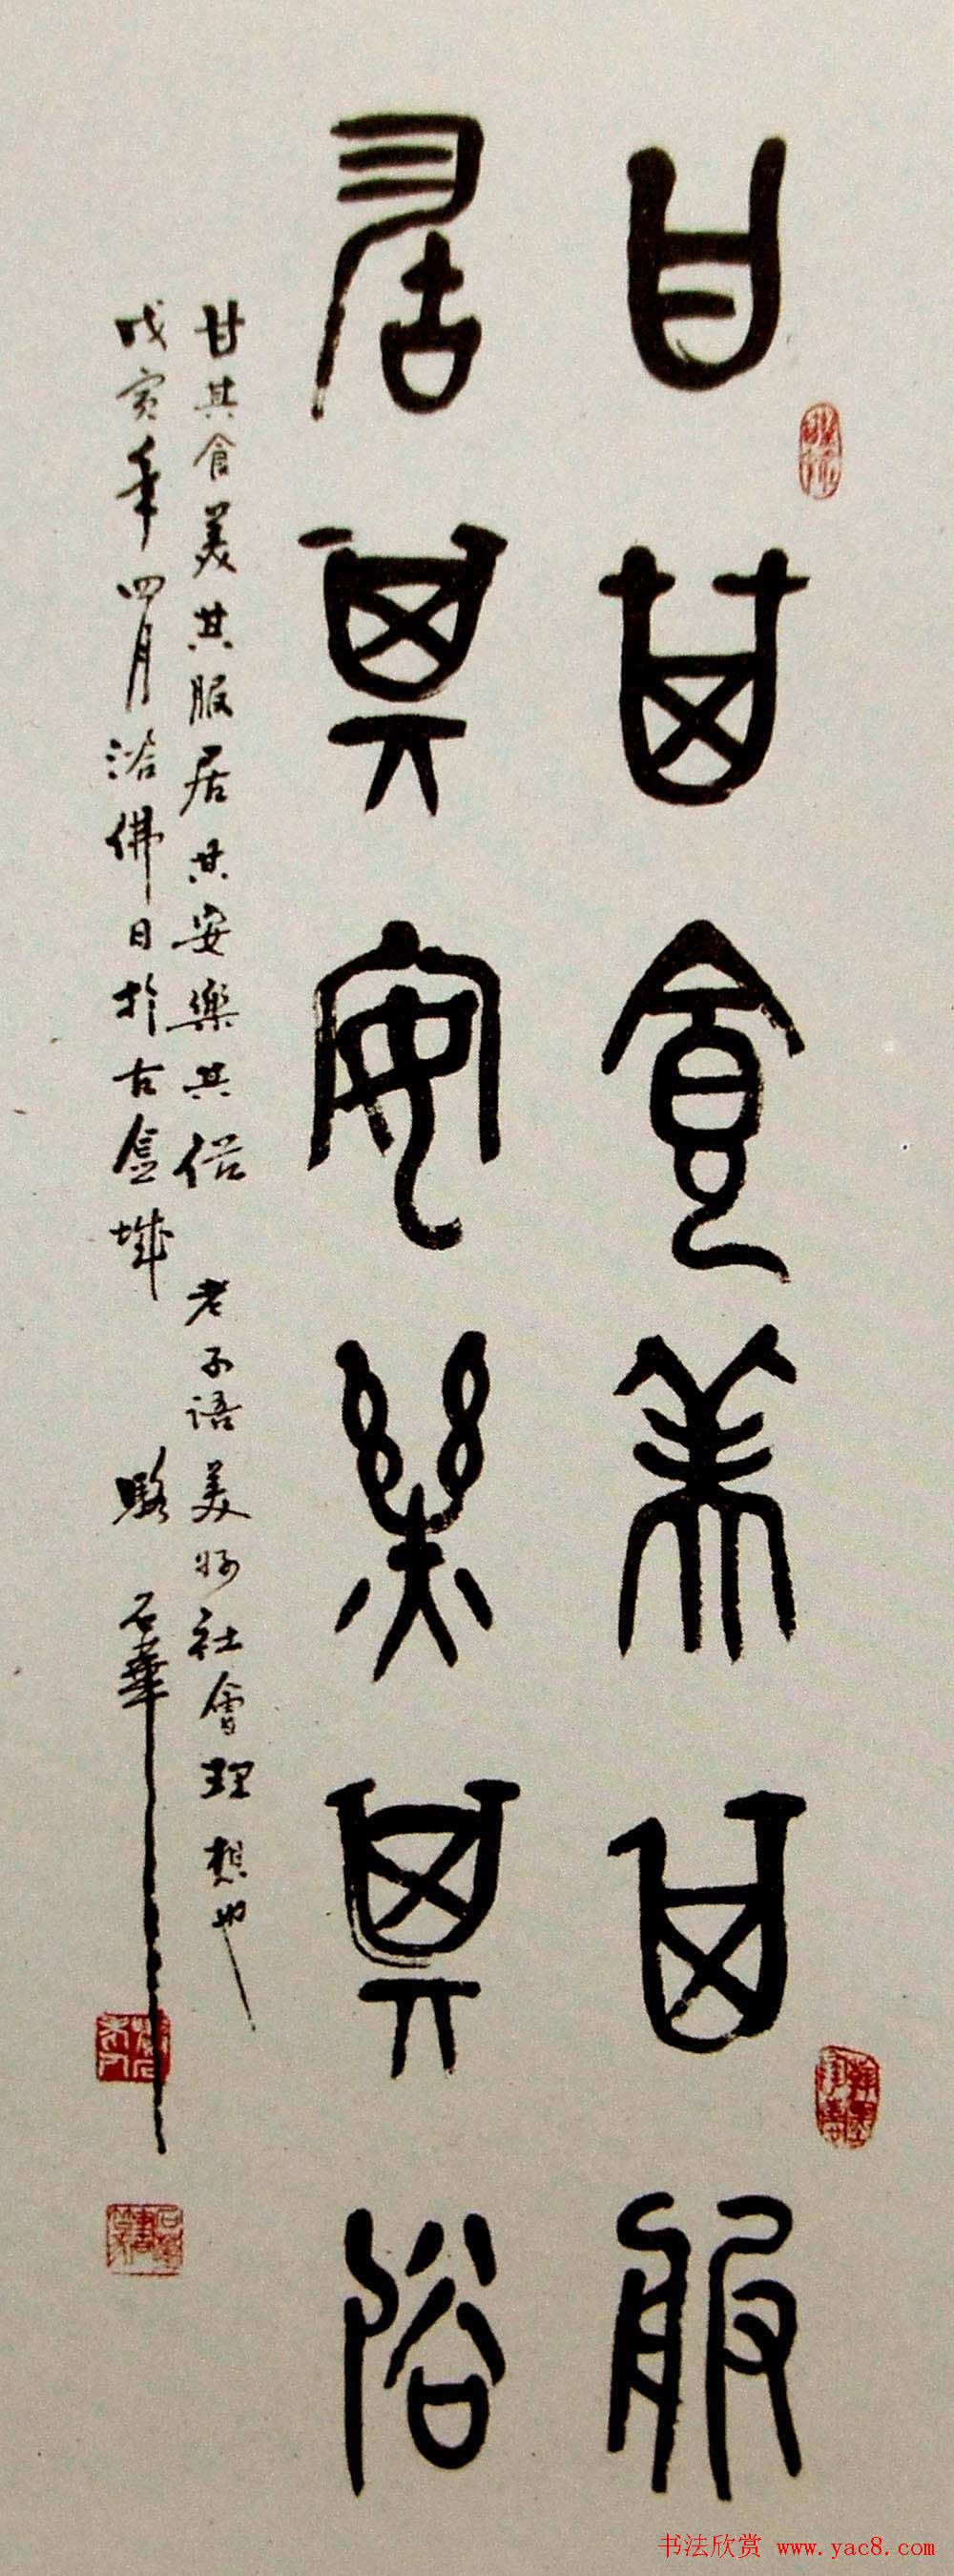 甘其食美其服
居其安樂其俗
甘其食美其服居其安樂其俗 老子語美好社會理想也
戊寅年四月浴佛日於古城 駱石華
书法欣赏 www.yac8.com